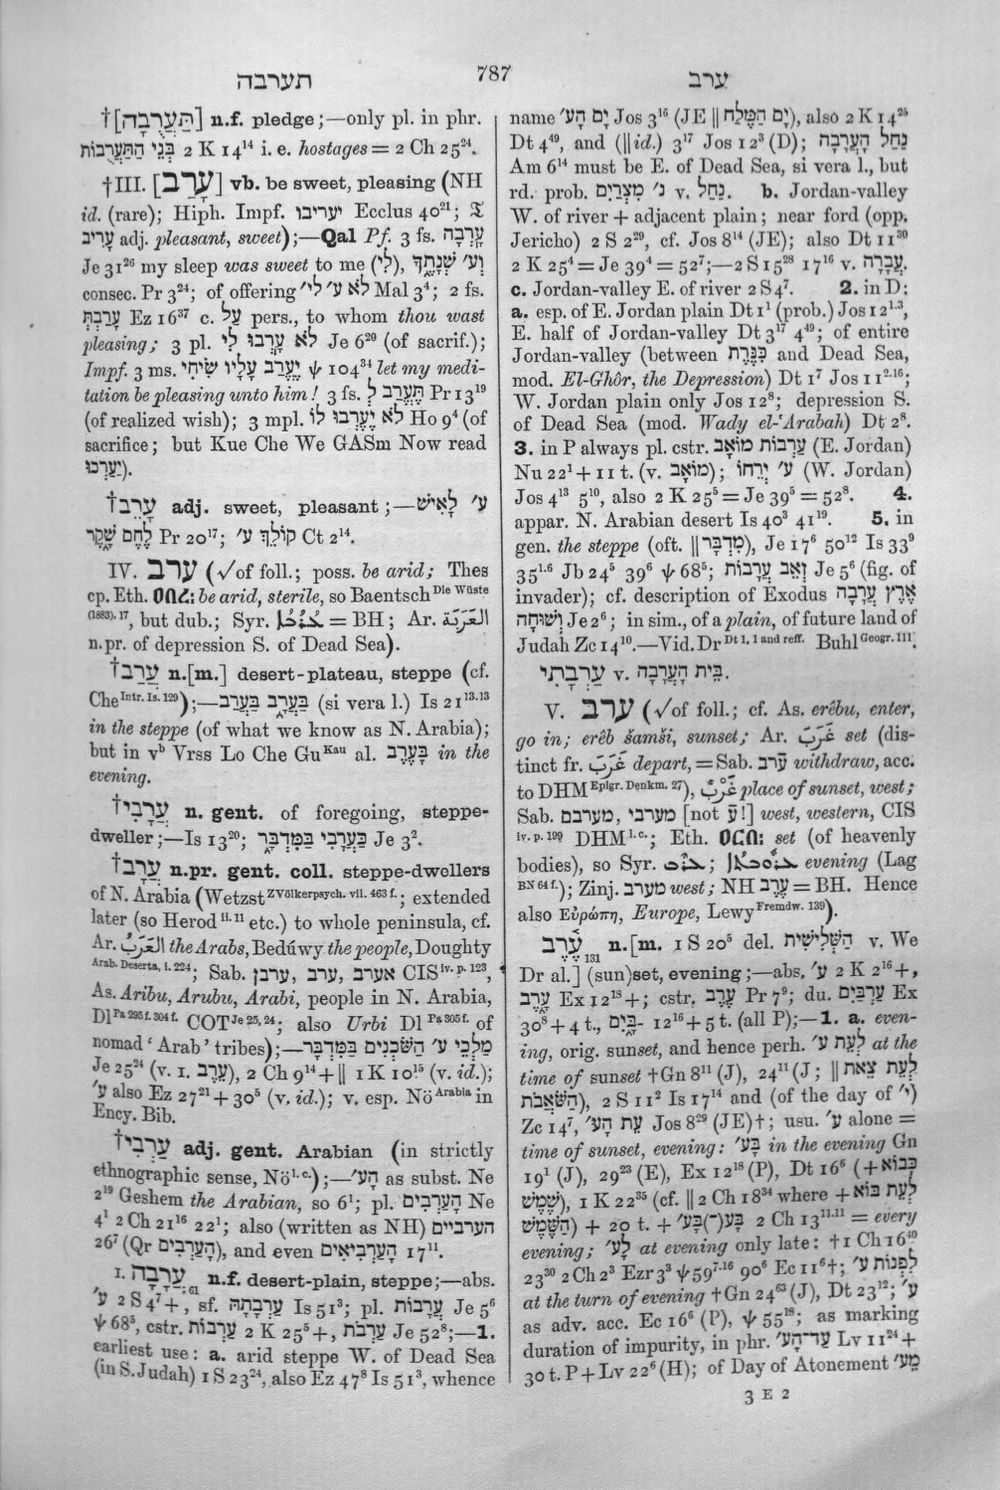 תערבה
787
ערב
†[תַּעֲרֻבָה] n.f. pledge;—only pl. in phr.
בְּנֵי הַתַּעֲרֻבוֹת 2 K 14¹⁴ i. e. hostages = 2 Ch 25²⁴.
†III. [עָרֵב] vb. be sweet, pleasing (NH
id. (rare); Hiph. Impf. יעריבו Ecclus 40²¹; 𝔗
עֲרֵיב adj. pleasant, sweet);—Qal Pf. 3 fs. עָרְבָה
Je 31²⁶ my sleep was sweet to me (לִי), וְע׳ שְׁנָתֶךָ
consec. Pr 3²⁴; of offering לֹא ע׳ לי׳ Mal 3⁴; 2 fs.
עָרַבְתְּ Ez 16³⁷ c. עַל pers., to whom thou wast
pleasing; 3 pl. לֹא עָרְבוּ לִי Je 6²⁰ (of sacrif.);
Impf. 3 ms. יֶעֱרַב עָלָיו שִׂיחִי ψ 104³⁴ let my medi-
tation be pleasing unto him! 3 fs. תֶּעֱרַב לְ Pr 13¹⁹
(of realized wish); 3 mpl. לֹא יֶעֶרְבוּ לוֹ Ho 9⁴ (of
sacrifice; but Kue Che We GASm Now read
יַעַרְכוּ).
†עָרֵב adj. sweet, pleasant;—ע׳ לָאִישׁ
לֶחֶם שָׁקֶר Pr 20¹⁷; קוֹלֵךְ ע׳ Ct 2¹⁴.
IV. ערב (√of foll.; poss. be arid; Thes
cp. Eth. be arid, sterile, so Baentsch Die Wüste
(1883). 17, but dub.; Syr. = BH; Ar. العَرَبَة
n.pr. of depression S. of Dead Sea).
†עֲרָב n.[m.] desert-plateau, steppe (cf.
Che Intr. Is. 129);—בַּעְרָב בַּעְרַב (si vera l.) Is 21¹³·¹³
in the steppe (of what we know as N. Arabia);
but in vᵇ Vrss Lo Che Gu Kau al. בָּעֶרֶב in the
evening.
†עֲרָבִי n. gent. of foregoing, steppe-
dweller;—Is 13²⁰; כַּעֲרָבִי בַּמִּדְבָּר Je 3².
†עֲרָב n.pr. gent. coll. steppe-dwellers
of N. Arabia (Wetzst Zvölkerpsych. vii. 463 f.; extended
later (so Herod ii. 11 etc.) to whole peninsula, cf.
Ar. العَرَبُ the Arabs, Bedúwy the people, Doughty
Arab. Deserta, i. 224; Sab. אערב, ערב, ערבן CIS iv. p. 123,
As. Aribu, Arubu, Arabi, people in N. Arabia,
Dl Pa 295 f. 304 f. COT Je 25, 24; also Urbi Dl Pa 305 f. of
nomad ‘Arab’ tribes);—מַלְכֵי ע׳ הַשֹּׁכְנִים בַּמִּדְבָּר
Je 25²⁴ (v. I. עֶרֶב), 2 Ch 9¹⁴+ ‖ 1 K 10¹⁵ (v. id.);
ע׳ also Ez 27²¹ + 30⁵ (v. id.); v. esp. Nö Arabia in
Ency. Bib.
†עַרְבִי adj. gent. Arabian (in strictly
ethnographic sense, Nö l. c.);—הָע׳ as subst. Ne
2¹⁹ Geshem the Arabian, so 6¹; pl. הָעַרְבִים Ne
4¹ 2 Ch 21¹⁶ 22¹; also (written as NH) הערביים
26⁷ (Qr הָעַרְבִים), and even הָעַרְבִיאִים 17¹¹.
I. עֲרָבָה 61 n.f. desert-plain, steppe;—abs.
ע׳ 2 S 4⁷+, sf. עַרְבָתָהּ Is 51³; pl. עֲרָבוֹת Je 5⁶
ψ 68⁵, cstr. עַרְבוֹת 2 K 25⁵+, עַרְבֹת Je 52⁸;—1.
earliest use: a. arid steppe W. of Dead Sea
(in S. Judah) 1 S 23²⁴, also Ez 47⁸ Is 51³, whence
name יָם הָע׳ Jos 3¹⁶ (JE ‖ יָם הַמֶּלַח), also 2 K 14²⁵
Dt 4⁴⁹, and (‖ id.) 3¹⁷ Jos 12³ (D); נַחַל הָעֲרָבָה
Am 6¹⁴ must be E. of Dead Sea, si vera l., but
rd. prob. נ׳ מִצְרַיִם v. נַחַל. b. Jordan-valley
W. of river + adjacent plain; near ford (opp.
Jericho) 2 S 2²⁹, cf. Jos 8¹⁴ (JE); also Dt 11³⁰
2 K 25⁴ = Je 39⁴ = 52⁷;—2 S 15²⁸ 17¹⁶ v. עֲבָרָה.
c. Jordan-valley E. of river 2 S 4⁷. 2. in D:
a. esp. of E. Jordan plain Dt 1¹ (prob.) Jos 12¹·³,
E. half of Jordan-valley Dt 3¹⁷ 4⁴⁹; of entire
Jordan-valley (between כִּנֶּרֶת and Dead Sea,
mod. El-Ghôr, the Depression) Dt 1⁷ Jos 11²·¹⁶;
W. Jordan plain only Jos 12⁸; depression S.
of Dead Sea (mod. Wady el-ʿArabah) Dt 2⁸.
3. in P always pl. cstr. עַרְבוֹת מוֹאָב (E. Jordan)
Nu 22¹ + 11 t. (v. מוֹאָב); ע׳ יְרֵחוֹ (W. Jordan)
Jos 4¹³ 5¹⁰, also 2 K 25⁵ = Je 39⁵ = 52⁸. 4.
appar. N. Arabian desert Is 40³ 41¹⁹. 5. in
gen. the steppe (oft. ‖ מִדְבָּר), Je 17⁶ 50¹² Is 33⁹
35¹·⁶ Jb 24⁵ 39⁶ ψ 68⁵; זְאֵב עֲרָבוֹת Je 5⁶ (fig. of
invader); cf. description of Exodus אֶרֶץ עֲרָבָה
וְשׁוּחָה Je 2⁶; in sim., of a plain, of future land of
Judah Zc 14¹⁰.—Vid. Dr Dt 1, 1 and reff. Buhl Geogr. 111.
עַרְבָתִי v. בֵּית הָעֲרָבָה.
V. ערב (√of foll.; cf. As. erêbu, enter,
go in; erêb šamši, sunset; Ar. غَرَبَ set (dis-
tinct fr. غَرَبَ depart, = Sab. withdraw, acc.
to DHM Epigr. Denkm. 27), غَرْبٌ place of sunset, west;
Sab. מערבי, מערבם [not !] west, western, CIS
iv. p. 199 DHM l. c.; Eth. set (of heavenly
bodies), so Syr. ; evening (Lag
BN 64 f.); Zinj. מערב west; NH עֶרֶב = BH. Hence
also Εὐρώπη, Europe, Lewy Fremdw. 139).
עֶרֶב 131 n.[m. 1 S 20⁵ del. הַשְּׁלִישִׁית v. We
Dr al.] (sun)set, evening;—abs. ע׳ 2 K 2¹⁶+,
עָרֶב Ex 12¹⁸+; cstr. עֶרֶב Pr 7⁹; du. עַרְבַּיִם Ex
30⁸ + 4 t., ־בָּיִם 12¹⁶ + 5 t. (all P);—1. a. even-
ing, orig. sunset, and hence perh. לְעֵת ע׳ at the
time of sunset † Gn 8¹¹ (J), 24¹¹ (J; ‖ לְעֵת צֵאת
הַשֹּׁאֲבֹת), 2 S 11² Is 17¹⁴ and (of the day of י׳)
Zc 14⁷, עֵת הָע׳ Jos 8²⁹ (JE)†; usu. ע׳ alone =
time of sunset, evening: בָּע׳ in the evening Gn
19¹ (J), 29²³ (E), Ex 12¹⁸ (P), Dt 16⁶ (+ כְּבוֹא
שֶׁמֶשׁ), 1 K 22³⁵ (cf. ‖ 2 Ch 18³⁴ where + לְעֵת בּוֹא
הַשֶּׁמֶשׁ) + 20 t. + בָּע׳(־)בָּע׳ 2 Ch 13¹¹·¹¹ = every
evening; לָע׳ at evening only late: † 1 Ch 16⁴⁰
23³⁰ 2 Ch 2³ Ezr 3³ ψ 59⁷·¹⁶ 90⁶ Ec 11⁶†; לִפְנוֹת ע׳
at the turn of evening † Gn 24⁶³ (J), Dt 23¹²; ע׳
as adv. acc. Ec 16⁶ (P), ψ 55¹⁸; as marking
duration of impurity, in phr. עַד־הָע׳ Lv 11²⁴ +
30 t. P + Lv 22⁶ (H); of Day of Atonement מֵע׳
3 E 2